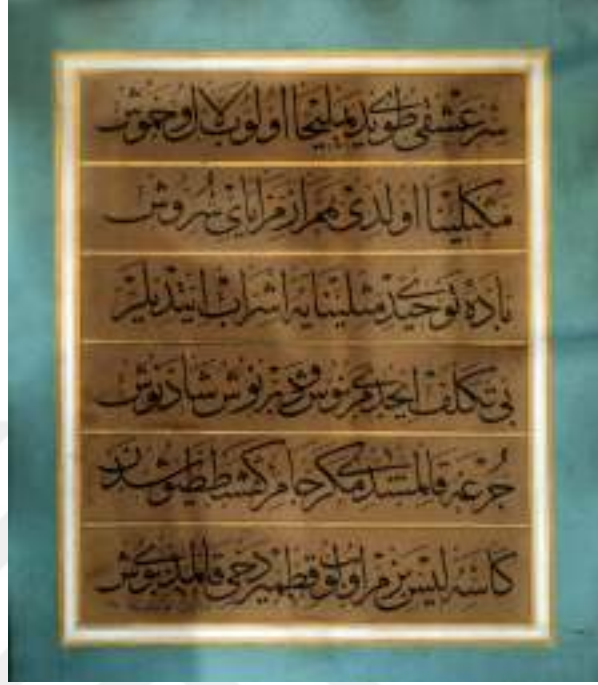 سر عشقی طویدی یملیخا اولوب لال و خموش
مکسلینا اولدی همراز مزایای سروش
باده توحیدی مثلینایه اشراب ایتدیلر
بی تکلف ایچدی مرنوش و دبرنوش شاذنوش
جرعه قالمشدی مکر کفشططیوشدن
کاسه لیس بزم اولوب قطمیر دخی قالمدی بوش